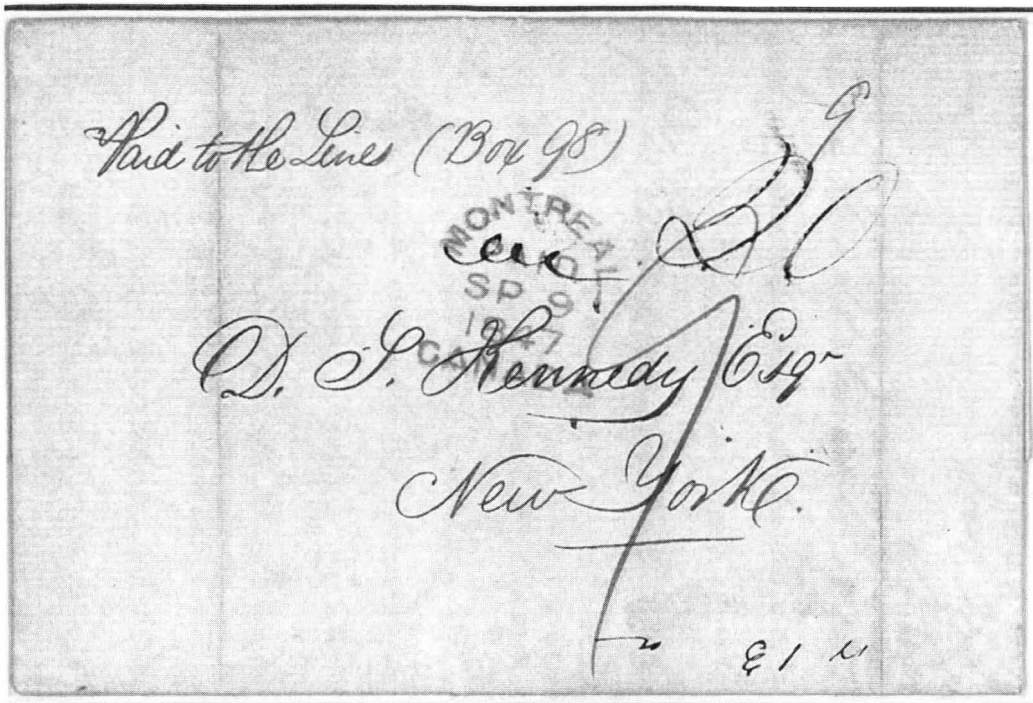 Paid to the Lines (Box 98)
9
MONTREAL
PAID
SP 9
1847
CANADA
D. S. Kennedy Esqr
New York.